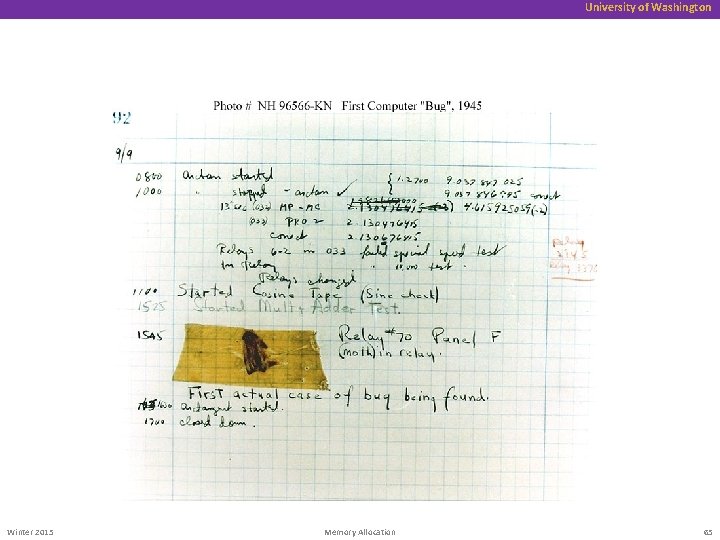 University of Washington
Photo # NH 96566-KN First Computer "Bug", 1945
92
9/9
0800 antan started
1000 " stopped - antan ✓ { 1.2700 9.037 847 025
9.037 846 995 correct
13"uc (032) MP - MC 4.615925059(-2)
(033) PRO 2 2.130476415
correct 2.130676415
Relays 6-2 in 033 failed special speed test
in Relay " 10.000 test.
Relay
2145
Relay 3370
Relays changed
1100 Started Cosine Tape (Sine check)
1525 Started Mult + Adder Test.
1545 Relay #70 Panel F
(moth) in relay.
First actual case of bug being found.
1630 antangent started.
1700 closed down.
Winter 2015
Memory Allocation
65